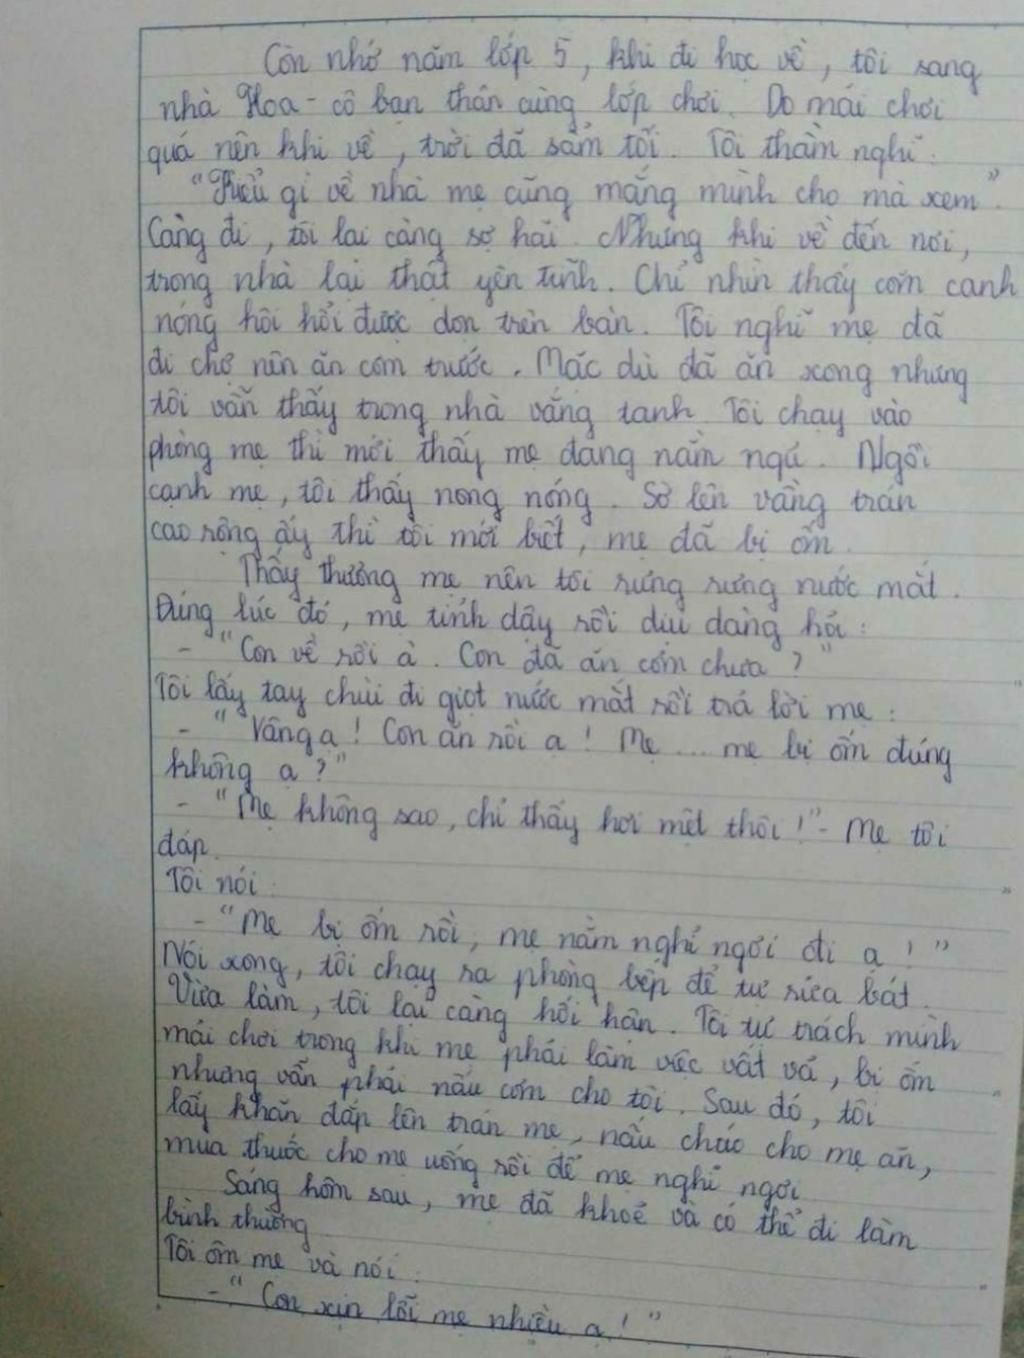 Còn nhớ năm lớp 5, khi đi học về, tôi sang
nhà Hoa - cô bạn thân cùng lớp chơi. Do mải chơi
quá nên khi về, trời đã sẩm tối. Tôi thầm nghĩ:
"Kiểu gì về nhà mẹ cũng mắng mình cho mà xem".
Càng đi, tôi lại càng sợ hãi. Nhưng khi về đến nơi,
trong nhà lại thật yên tĩnh. Chỉ nhìn thấy cơm canh
nóng hôi hổi được dọn trên bàn. Tôi nghĩ mẹ đã
đi chợ nên ăn cơm trước. Mặc dù đã ăn xong nhưng
tôi vẫn thấy trong nhà vắng tanh. Tôi chạy vào
phòng mẹ thì mới thấy mẹ đang nằm ngủ. Ngồi
cạnh mẹ, tôi thấy nong nóng. Sờ lên vầng trán
cao rộng ấy thì tôi mới biết, mẹ đã bị ốm.
Thấy thương mẹ nên tôi rưng rưng nước mắt.
Đúng lúc đó, mẹ tỉnh dậy rồi dịu dàng hỏi:
- "Con về rồi à. Con đã ăn cơm chưa?"
Tôi lấy tay chùi đi giọt nước mắt rồi trả lời mẹ:
- "Vâng ạ! Con ăn rồi ạ! Mẹ... mẹ bị ốm đúng
không ạ?"
- "Mẹ không sao, chỉ thấy hơi mệt thôi!" - Mẹ tôi
đáp.
Tôi nói:
- "Mẹ bị ốm rồi, mẹ nằm nghỉ ngơi đi ạ!"
Nói xong, tôi chạy ra phòng bếp để tự rửa bát.
Vừa làm, tôi lại càng hối hận. Tôi tự trách mình
mải chơi trong khi mẹ phải làm việc vất vả, bị ốm
nhưng vẫn phải nấu cơm cho tôi. Sau đó, tôi
lấy khăn đắp lên trán mẹ, nấu cháo cho mẹ ăn,
mua thuốc cho mẹ uống rồi để mẹ nghỉ ngơi
Sáng hôm sau, mẹ đã khoẻ và có thể đi làm
bình thường
Tôi ôm mẹ và nói:
- "Con xin lỗi mẹ nhiều ạ!"